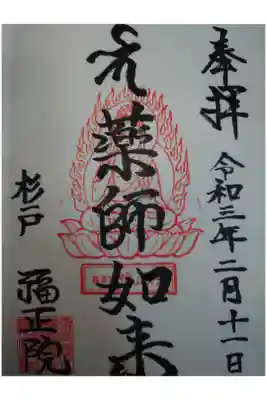 奉拝 令和三年二月十一日
薬師如来
杉戸 福正院